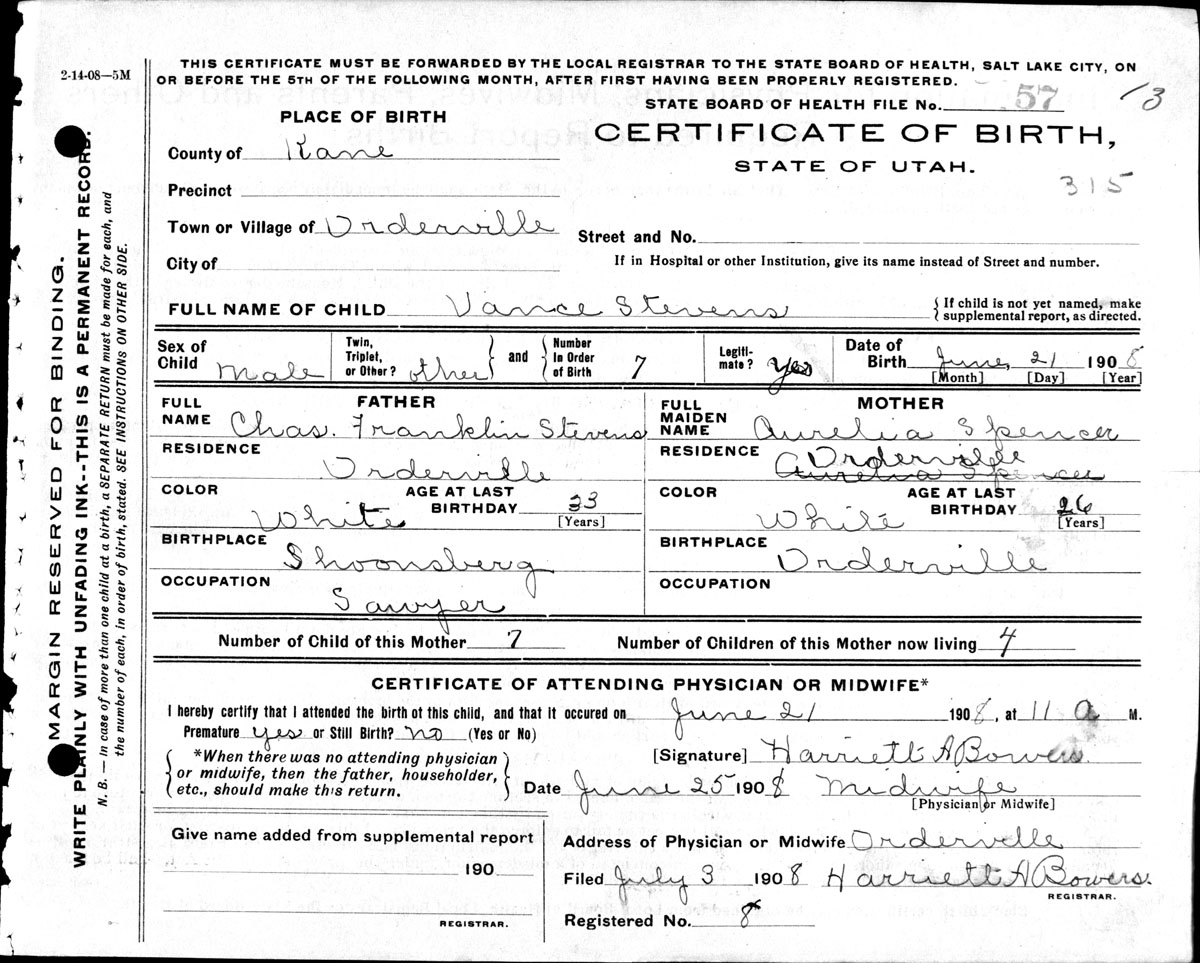 2-14-08—5M
THIS CERTIFICATE MUST BE FORWARDED BY THE LOCAL REGISTRAR TO THE STATE BOARD OF HEALTH, SALT LAKE CITY, ON
OR BEFORE THE 5TH OF THE FOLLOWING MONTH, AFTER FIRST HAVING BEEN PROPERLY REGISTERED.
STATE BOARD OF HEALTH FILE No. 57
13
PLACE OF BIRTH
CERTIFICATE OF BIRTH,
STATE OF UTAH.
315
County of Kane
Precinct
Town or Village of Orderville
Street and No.
City of
If in Hospital or other Institution, give its name instead of Street and number.
FULL NAME OF CHILD Vance Stevens
{ If child is not yet named, make
supplemental report, as directed.
Sex of Child Male
Twin, Triplet, or Other? other } and { Number In Order of Birth 7
Legiti-mate? Yes
Date of Birth June, 21 1908
[Month] [Day] [Year]
FATHER
FULL NAME Chas. Franklin Stevens
RESIDENCE
Orderville
COLOR White
AGE AT LAST BIRTHDAY 33
[Years]
BIRTHPLACE
Shoonsberg
OCCUPATION
Sawyer
MOTHER
FULL MAIDEN NAME Aurelia Spencer
RESIDENCE Orderville
Aurelia Spencer
COLOR White
AGE AT LAST BIRTHDAY 26
[Years]
BIRTHPLACE
Orderville
OCCUPATION
Number of Child of this Mother 7 Number of Children of this Mother now living 4
CERTIFICATE OF ATTENDING PHYSICIAN OR MIDWIFE*
I hereby certify that I attended the birth of this child, and that it occured on June 21 1908, at 11 a M.
Premature yes or Still Birth? no (Yes or No)
{ *When there was no attending physician
or midwife, then the father, householder,
etc., should make this return. }
[Signature] Harriett A Bowers
Date June 25 1908 Midwife
[Physician or Midwife]
Give name added from supplemental report
190
REGISTRAR.
Address of Physician or Midwife Orderville
Filed July 3 1908 Harriett A Bowers.
REGISTRAR.
Registered No. 8
MARGIN RESERVED FOR BINDING.
WRITE PLAINLY WITH UNFADING INK--THIS IS A PERMANENT RECORD.
N. B. — In case of more than one child at a birth, a SEPARATE RETURN must be made for each, and
the number of each, in order of birth, stated. SEE INSTRUCTIONS ON OTHER SIDE.